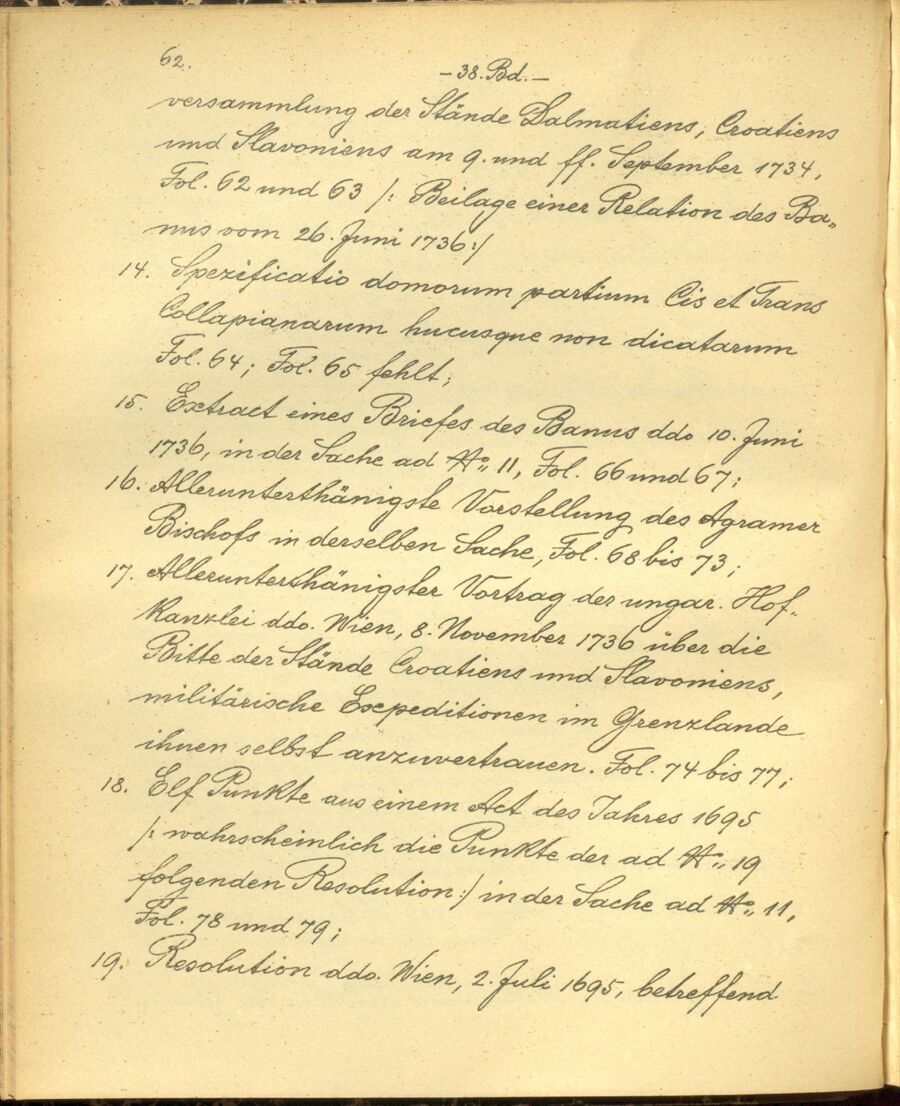 62.
– 38. Bd. –
versammlung der Stände Dalmatiens, Croatiens
und Slavoniens am 9. und ff. September 1734,
Fol. 62 und 63 /: Beilage einer Relation des Ba„
nus vom 26. Juni 1736 :/
14. Spezificatio domorum partium Cis et Trans
Collapianarum hucusque non dicatarum
Fol. 64; Fol. 65 fehlt;
15. Extract eines Briefes des Banus ddo 10. Juni
1736, in der Sache ad №„ 11, Fol. 66 und 67;
16. Allerunterthänigste Vorstellung des Agramer
Bischofs in derselben Sache, Fol. 68 bis 73;
17. Allerunterthänigster Vortrag der ungar. Hof„
kanzlei ddo. Wien, 8. November 1736 über die
Bitte der Stände Croatiens und Slavoniens,
militärische Expeditionen im Grenzlande
ihnen selbst anzuvertrauen. Fol. 74 bis 77;
18. Elf Punkte aus einem Act des Jahres 1695
/: wahrscheinlich die Punkte der ad №„ 19
folgenden Resolution :/ in der Sache ad №„ 11,
Fol. 78 und 79;
19. Resolution ddo. Wien, 2. Juli 1695, betreffend